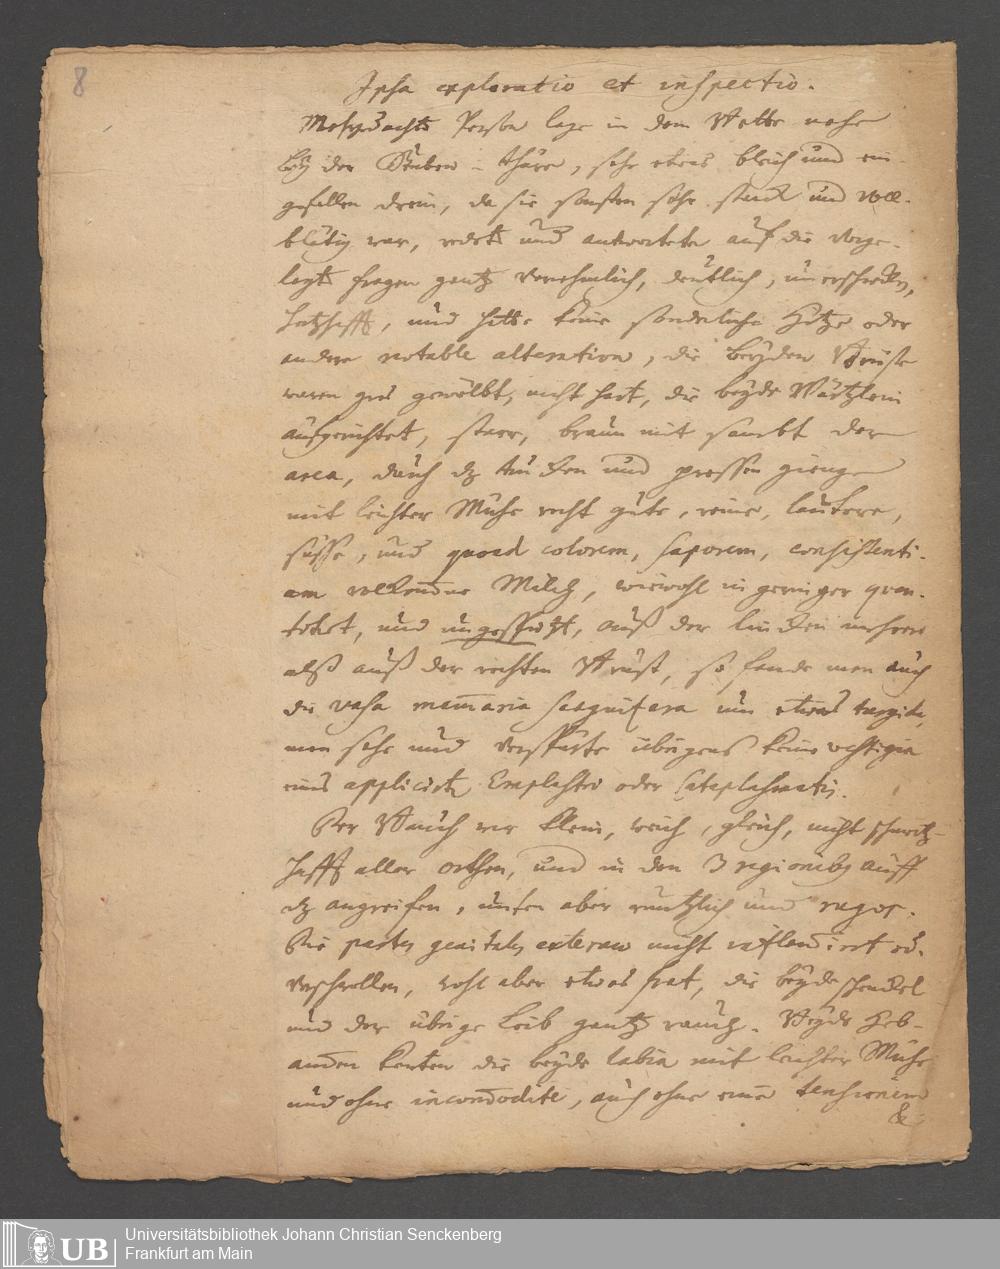 8
Ipsa exploratio et inspectio.
Mehrgedachte Person lage in dem Bette nahe
bey der Stuben-thüre, sahe etwas bleich und ein-
gefallen drein, da sie sonsten sehr starck und voll-
blütig war, redete und antwortete auf die vorge-
legte fragen gantz vernehmlich, deutlich, unerschrocken,
hertzhafft, und hatte keine sonderliche Hitze oder
andere notable alteration, die beyden Brüste
waren gros gewölbt, nicht hart, die beyde Wärtzlein
aufgerichtet, starr, braun mit sambt der
area, durch dz trucken und pressen gienge
mit leichter Mühe recht gute, reine, lautere,
süsse, und quoad colorem, saporem, consistenti-
am vollkom̄ne Milch, wiewohl in geringer quan-
titet, und ungespritzt, auß der lincken mehrers
alß auß der rechten Brust, so fande man auch
die vasa mam̄aria sanguifera um etwas turgida,
man sahe und verspürte übrigens keine vestigia
eines applicirte Emplastri oder Cataplasmatis.
Der Bauch war klein, weich, gleich, nicht schmertz-
hafft aller orthen, und in den 3 regionibus auff
dz angreifen, unten aber runtzlich und rugos.
Die partes genitales externae nicht inflam̄irt od.
verschwollen, wohl aber etwas hart, die beyde schenckel
und der übrige Leib gantz rauch. Beyde Heb-
am̄en konten die beyde labia mit leichter Mühe
und ohne incom̄odité, auch ohne eine tensionem
&
Universitätsbibliothek Johann Christian Senckenberg
Frankfurt am Main
UB